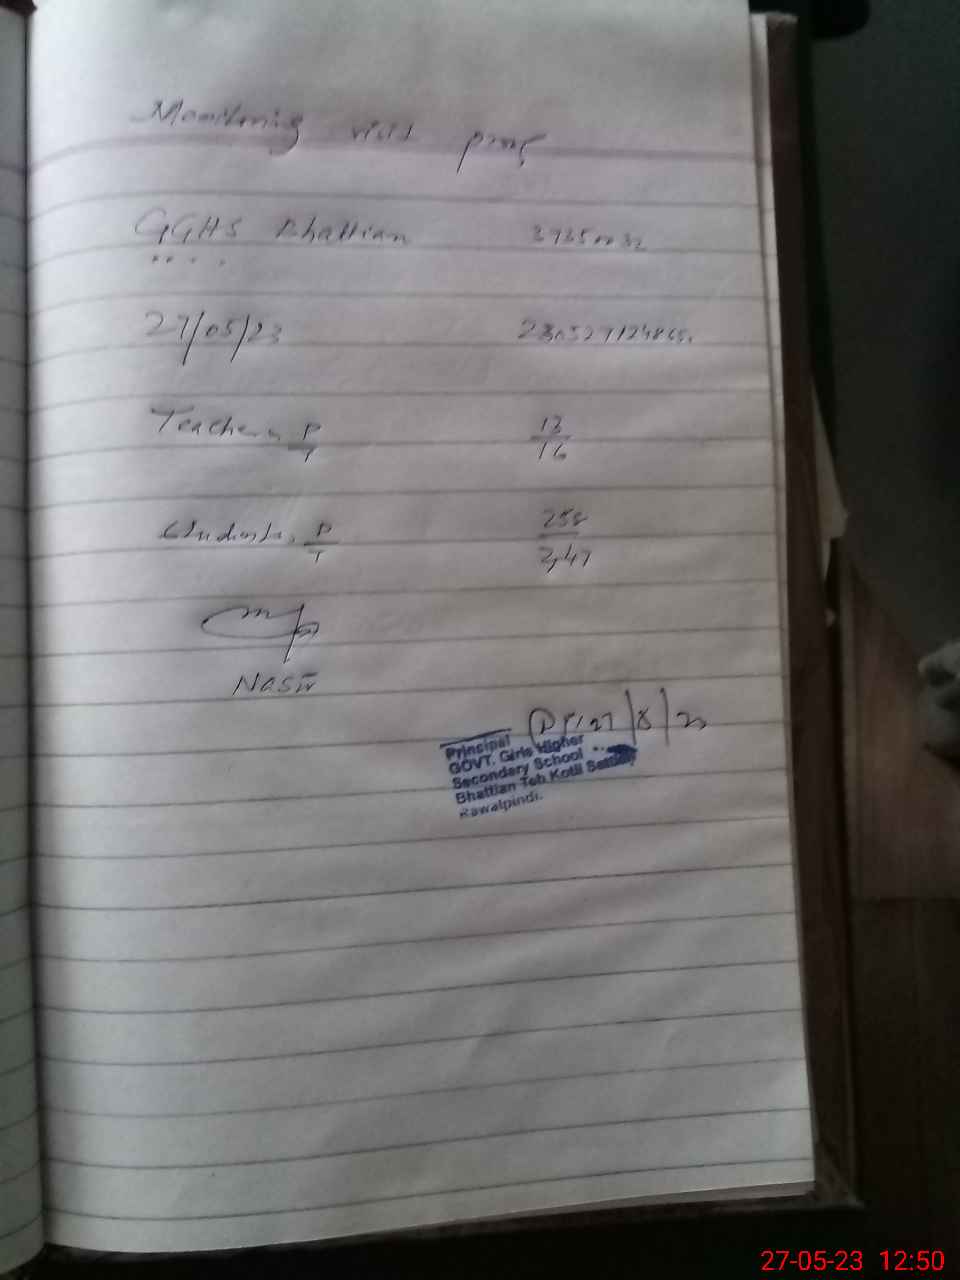 Monitoring visit proof
GGHS Bhattian 37350032
27/05/23
Teachers P/T 13/16
Students P/T
Nasir
Principal
GOVT. Girls Higher
Secondary School
Bhattian Teh Kotli Sattian
Rawalpindi.
27-05-23 12:50